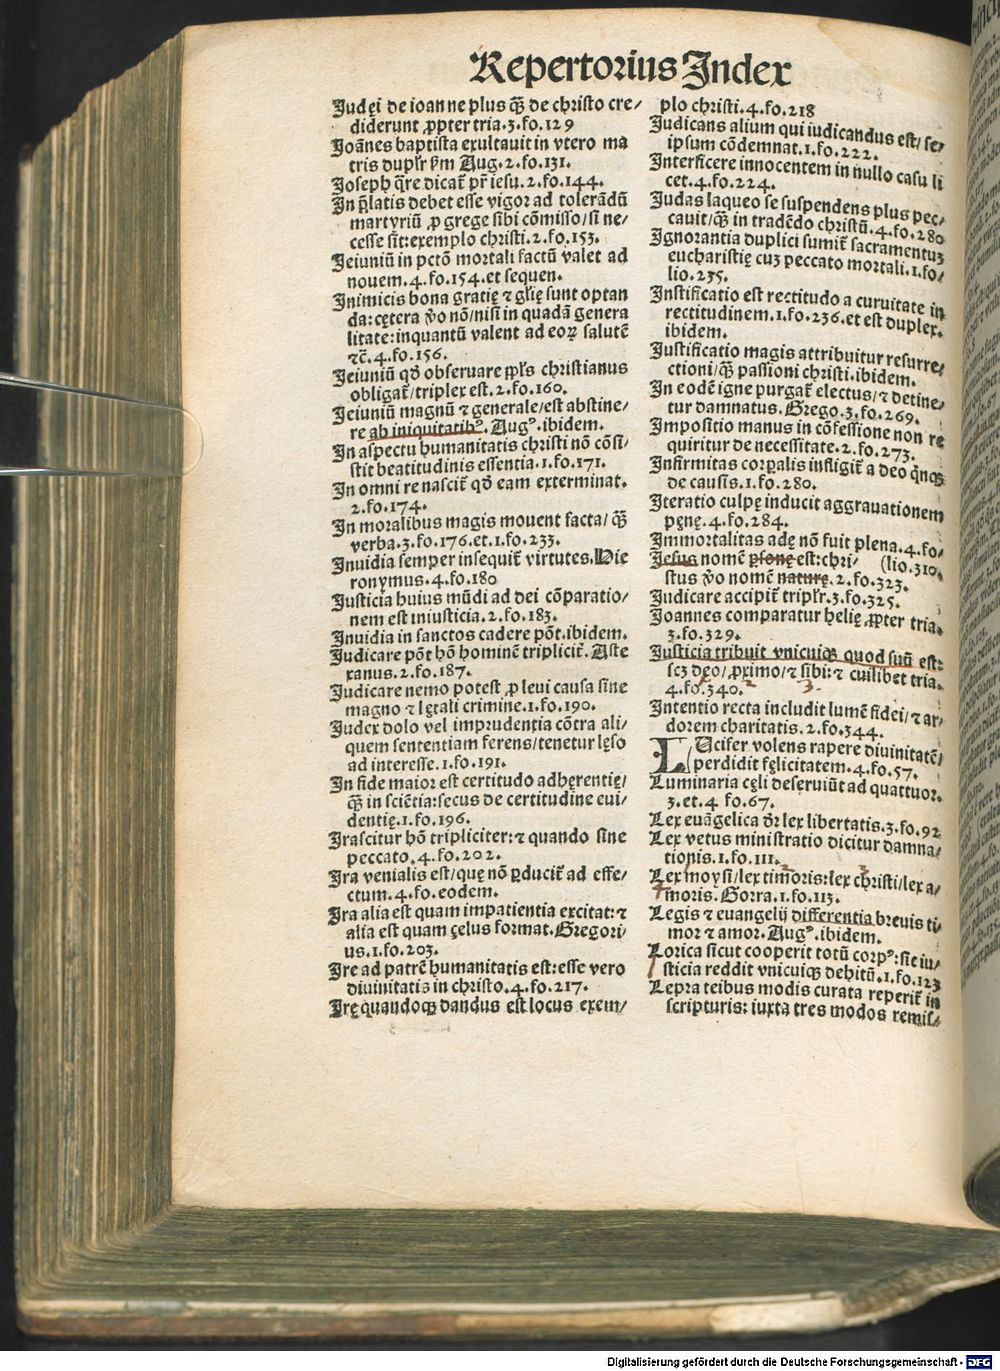 Repertorius Index
Judęi de ioanne plus q̃ꝫ de christo cre/
diderunt ꝓpter tria.3.fo.129
Joānes baptista exultauit in vtero ma
tris dupl'r ẜm Aug.2.fo.131.
Joseph q̃re dicat̃ pr̃ iesu.2.fo.144.
In p̃latis debet esse vigor ad tolerādū
martyriū ꝓ grege sibi cōmisso/si ne/
cesse sit:exemplo christi.2.fo.153.
Jeiuniū in pctō mortali factū valet ad
nouem.4.fo.154.et sequen.
Inimicis bona gratię ⁊ gl'ię sunt optan
da:cętera ṽo nō/nisi in quadā genera
litate:inquantū valent ad eoꝝ salutē
⁊c̃.4.fo.156.
Jeiuniū qd̃ obseruare ꝓpr̃s christianus
obligat̃/triplex est.2.fo.160.
Jeiuniū magnū ⁊ generale/est abstine/
re ab iniquitatib⁹.Aug⁹.ibidem.
In aspectu humanitatis christi nō cōsi/
stit beatitudinis essentia.1.fo.171.
In omni re nascit̃ qd̃ eam exterminat.
2.fo.174.
In moralibus magis mouent facta/ q̃ꝫ
verba.3.fo.176.et.1.fo.233.
Inuidia semper insequit̃ virtutes.Hie
ronymus.4.fo.180
Justicia huius mūdi ad dei cōparatio/
nem est iniusticia.2.fo.183.
Inuidia in sanctos cadere pōt.ibidem.
Judicare pōt hō hominē triplicit̃. Aste
xanus.2.fo.187.
Judicare nemo potest ꝓ leui causa sine
magno ⁊ lętali crimine.1.fo.190.
Judex dolo vel imprudentia cōtra ali/
quem sententiam ferens/tenetur lęso
ad interesse.1.fo.191.
In fide maior est certitudo adhęrentię/
q̃ꝫ in sciētia:secus de certitudine eui/
dentię.1.fo.196.
Irascitur hō tripliciter:⁊ quando sine
peccato.4.fo.202.
Ira venialis est/quę nō ꝑducit̃ ad effe/
ctum.4.fo.eodem.
Ira alia est quam impatientia excitat:⁊
alia est quam çelus format.Gregori/
us.1.fo.203.
Ire ad patrē humanitatis est:esse vero
diuinitatis in christo.4.fo.217.
Irę quandoqꝫ dandus est locus exem/
plo christi.4.fo.218
Judicans alium qui iudicandus est/ se/
ipsum cōdemnat.1.fo.222.
Interficere innocentem in nullo casu li
cet.4.fo.224.
Judas laqueo se suspendens plus pec/
cauit/q̃ꝫ in tradēdo christū.4.fo.280
Ignorantia duplici sumit̃ sacramentuꝫ
eucharistię cuꝫ peccato mortali.1.fo/
lio.235.
Iustificatio est rectitudo a curuitate in
rectitudinem.1.fo.236.et est duplex.
ibidem.
Justificatio magis attribuitur resurre/
ctioni/q̃ꝫ passioni christi.ibidem.
In eodē igne purgat̃ electus/⁊ detine/
tur damnatus.Grego.3.fo.269.
Impositio manus in cōfessione non re
quiritur de necessitate.2.fo.273.
Infirmitas corꝑalis infligit̃ a deo q̃nqꝫ
de causis.1.fo.280.
Iteratio culpę inducit aggrauationem
pęnę.4.fo.284.
Immortalitas adę nō fuit plena.4.fo/
(lio.310.
Jesus nomē ꝑsonę est:chri/
stus ṽo nomē naturę.2.fo.323.
Judicare accipit̃ tripl'r.3.fo.325.
Joannes comparatur helię ꝓpter tria.
3.fo.329.
Justicia tribuit vnicuiqꝫ quod suū est:
scꝫ deo/ꝓximo/⁊ sibi:⁊ cuilibet tria.
4.fo.340.
Intentio recta includit lumē fidei/⁊ ar/
dorem charitatis.2.fo.344.
LUcifer volens rapere diuinitatē/
perdidit fęlicitatem.4.fo.57.
Luminaria cęli deseruiūt ad quattuor.
3.et.4 fo.67.
Lex euāgelica dr̃ lex libertatis.3.fo.92
Lex vetus ministratio dicitur damna/
tionis.1.fo.111.
Lex moysi/lex timoris:lex christi/lex a/
moris.Gorra.1.fo.113.
Legis ⁊ euangelij differentia breuis ti/
mor ⁊ amor.Aug⁹.ibidem.
Lorica sicut cooperit totū corp⁹:sic iu/
sticia reddit vnicuiqꝫ debitū.1.fo.123
Lepra teibus modis curata reperit̃ in
scripturis:iuxta tres modos remis/
Digitalisierung gefördert durch die Deutsche Forschungsgemeinschaft - DFG